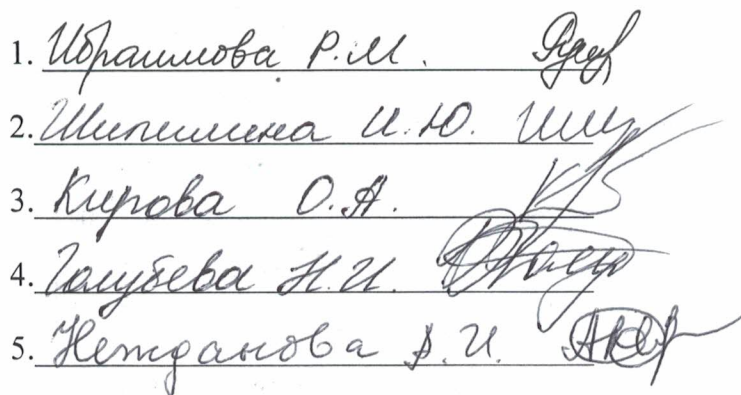 1. Ибраимова Р.М.
2. Шипилина И.Ю.
3. Кирова О.А.
4. Голубева Н.И.
5. Нежданова А.И.